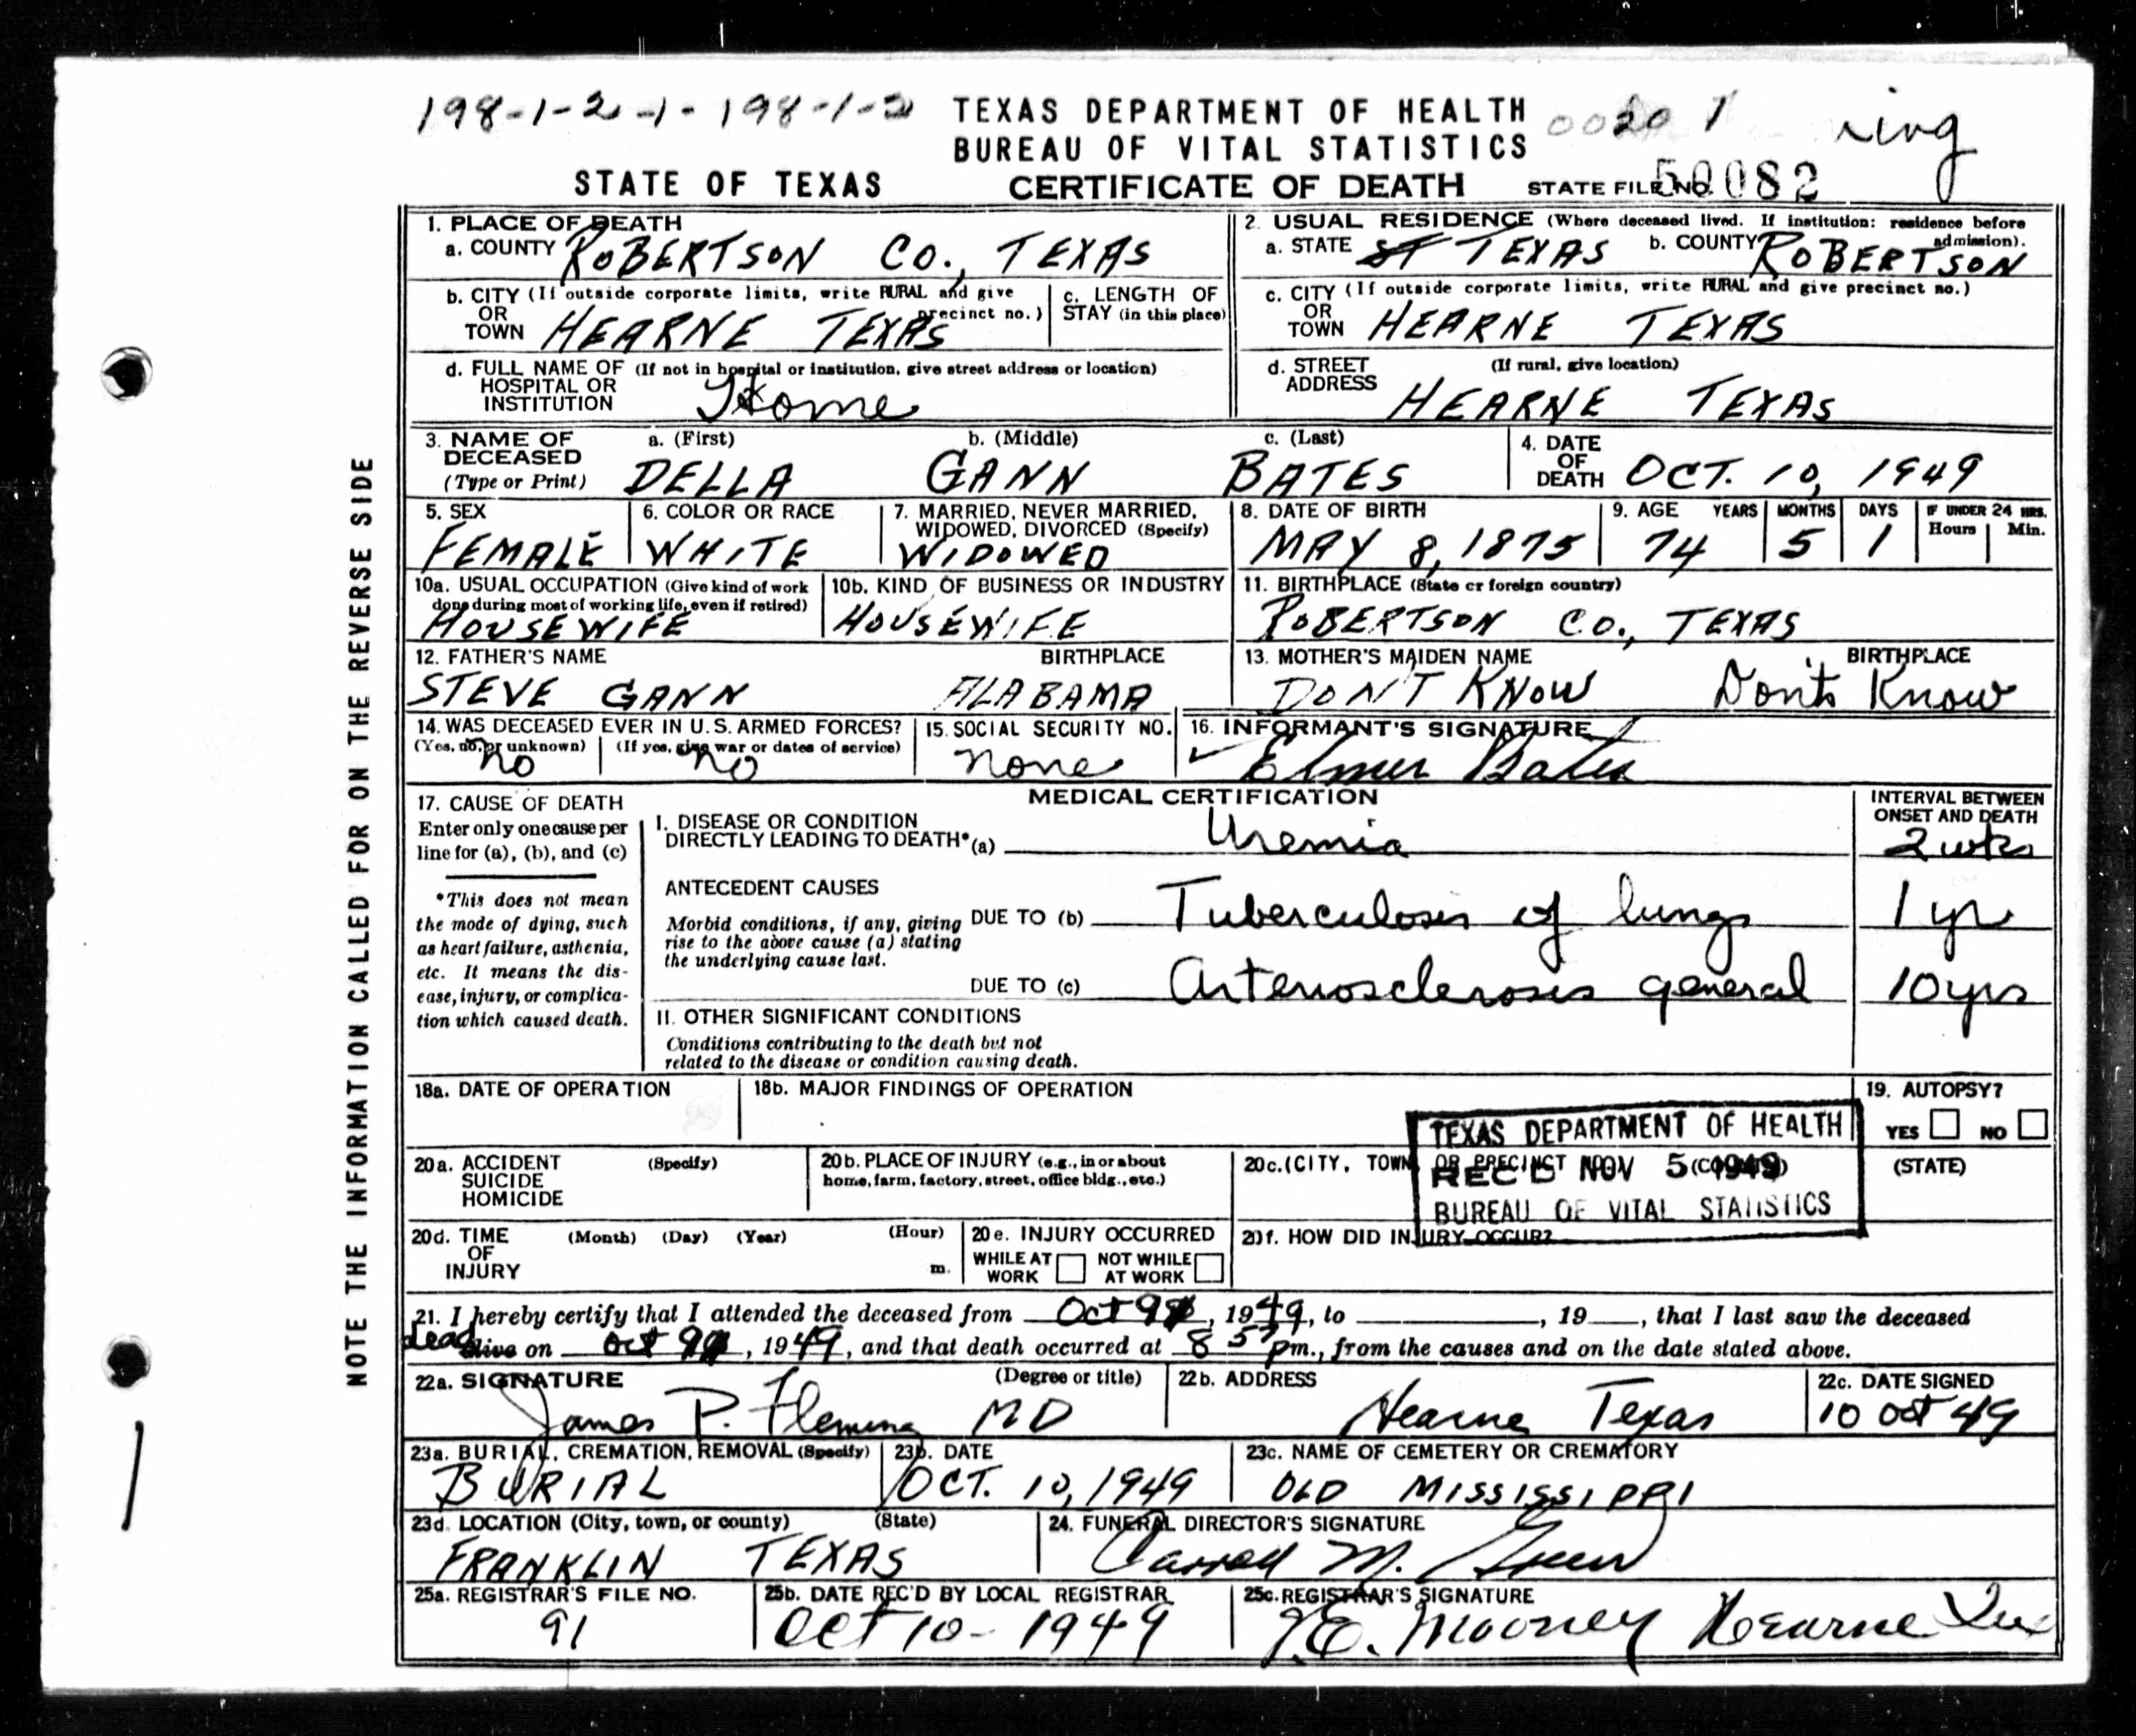 198-1-2-1-198-1-2 TEXAS DEPARTMENT OF HEALTH 0020 1
BUREAU OF VITAL STATISTICS
STATE OF TEXAS CERTIFICATE OF DEATH STATE FILE NO. 50082
NOTE THE INFORMATION CALLED FOR ON THE REVERSE SIDE
1. PLACE OF DEATH
a. COUNTY ROBERTSON CO., TEXAS
2. USUAL RESIDENCE (Where deceased lived. If institution: residence before admission).
a. STATE ST TEXAS b. COUNTY ROBERTSON
b. CITY (If outside corporate limits, write RURAL and give precinct no.)
OR
TOWN HEARNE TEXAS
c. LENGTH OF
STAY (in this place)
c. CITY (If outside corporate limits, write RURAL and give precinct no.)
OR
TOWN HEARNE TEXAS
d. FULL NAME OF (If not in hospital or institution, give street address or location)
HOSPITAL OR
INSTITUTION Home
d. STREET (If rural, give location)
ADDRESS HEARNE TEXAS
3. NAME OF a. (First) b. (Middle) c. (Last)
DECEASED
(Type or Print) DELLA GANN BATES
4. DATE
OF
DEATH OCT. 10, 1949
5. SEX
FEMALE
6. COLOR OR RACE
WHITE
7. MARRIED, NEVER MARRIED,
WIDOWED, DIVORCED (Specify)
WIDOWED
8. DATE OF BIRTH
MAY 8, 1875
9. AGE YEARS MONTHS DAYS IF UNDER 24 HRS.
Hours Min.
74 5 1
10a. USUAL OCCUPATION (Give kind of work
done during most of working life, even if retired)
HOUSEWIFE
10b. KIND OF BUSINESS OR INDUSTRY
HOUSEWIFE
11. BIRTHPLACE (State or foreign country)
ROBERTSON CO., TEXAS
12. FATHER'S NAME BIRTHPLACE
STEVE GANN ALABAMA
13. MOTHER'S MAIDEN NAME BIRTHPLACE
DON'T KNOW Don't Know
14. WAS DECEASED EVER IN U.S. ARMED FORCES?
(Yes, no, or unknown) (If yes, give war or dates of service)
no no
15. SOCIAL SECURITY NO.
none
16. INFORMANT'S SIGNATURE
Elmer Bates
17. CAUSE OF DEATH
Enter only one cause per
line for (a), (b), and (c)
*This does not mean
the mode of dying, such
as heart failure, asthenia,
etc. It means the dis-
ease, injury, or complica-
tion which caused death.
MEDICAL CERTIFICATION
INTERVAL BETWEEN
ONSET AND DEATH
I. DISEASE OR CONDITION
DIRECTLY LEADING TO DEATH* (a) Uremia 2 wks
ANTECEDENT CAUSES
Morbid conditions, if any, giving
rise to the above cause (a) stating
the underlying cause last.
DUE TO (b) Tuberculosis of lungs 1 yr
DUE TO (c) Arteriosclerosis general 10 yrs
II. OTHER SIGNIFICANT CONDITIONS
Conditions contributing to the death but not
related to the disease or condition causing death.
18a. DATE OF OPERATION
18b. MAJOR FINDINGS OF OPERATION
19. AUTOPSY?
YES NO
TEXAS DEPARTMENT OF HEALTH
REC'D NOV 5 1949
BUREAU OF VITAL STATISTICS
20a. ACCIDENT (Specify)
SUICIDE
HOMICIDE
20b. PLACE OF INJURY (e.g., in or about
home, farm, factory, street, office bldg., etc.)
20c. (CITY, TOWN, OR PRECINCT NO.) (COUNTY) (STATE)
20d. TIME (Month) (Day) (Year) (Hour)
OF
INJURY m.
20e. INJURY OCCURRED
WHILE AT WORK NOT WHILE AT WORK
20f. HOW DID INJURY OCCUR?
21. I hereby certify that I attended the deceased from Oct 9, 1949, to , 19 , that I last saw the deceased
dead alive on Oct 9, 1949, and that death occurred at 8 57 pm., from the causes and on the date stated above.
22a. SIGNATURE (Degree or title)
James P. Fleming MD
22b. ADDRESS
Hearne Texas
22c. DATE SIGNED
10 Oct 49
23a. BURIAL, CREMATION, REMOVAL (Specify)
BURIAL
23b. DATE
OCT. 10, 1949
23c. NAME OF CEMETERY OR CREMATORY
OLD MISSISSIPPI
23d. LOCATION (City, town, or county) (State)
FRANKLIN TEXAS
24. FUNERAL DIRECTOR'S SIGNATURE
Carroll M.
25a. REGISTRAR'S FILE NO.
91
25b. DATE REC'D BY LOCAL REGISTRAR
Oct 10-1949
25c. REGISTRAR'S SIGNATURE
J.E. Mooney Hearne Tex